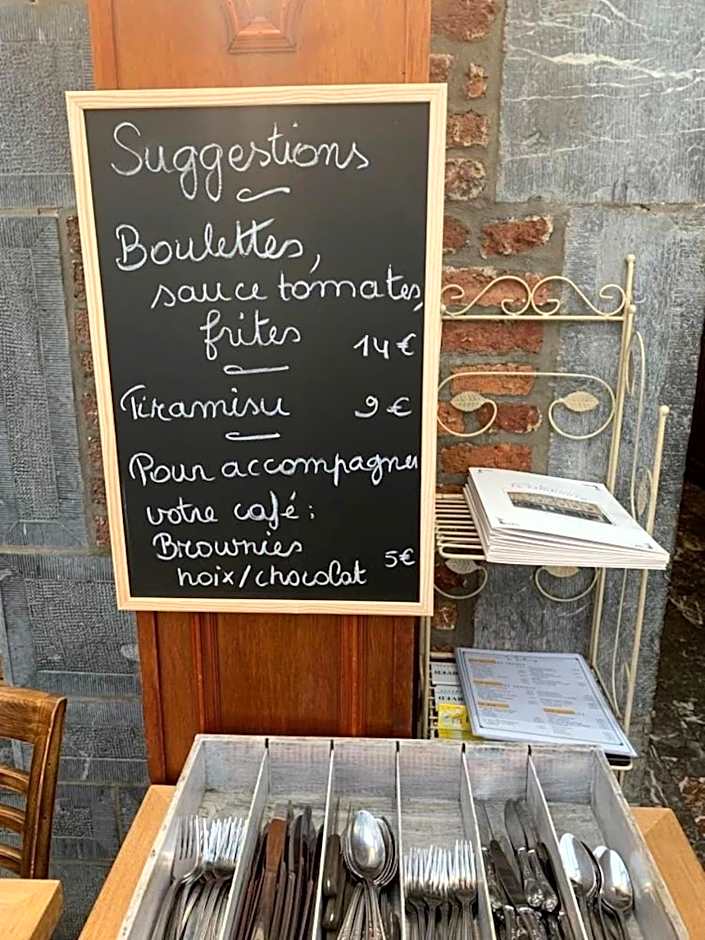 Suggestions
Boulettes,
sauce tomates,
frites 14 €
Tiramisu 9 €
Pour accompagner
votre café :
Brownies
noix/chocolat 5€